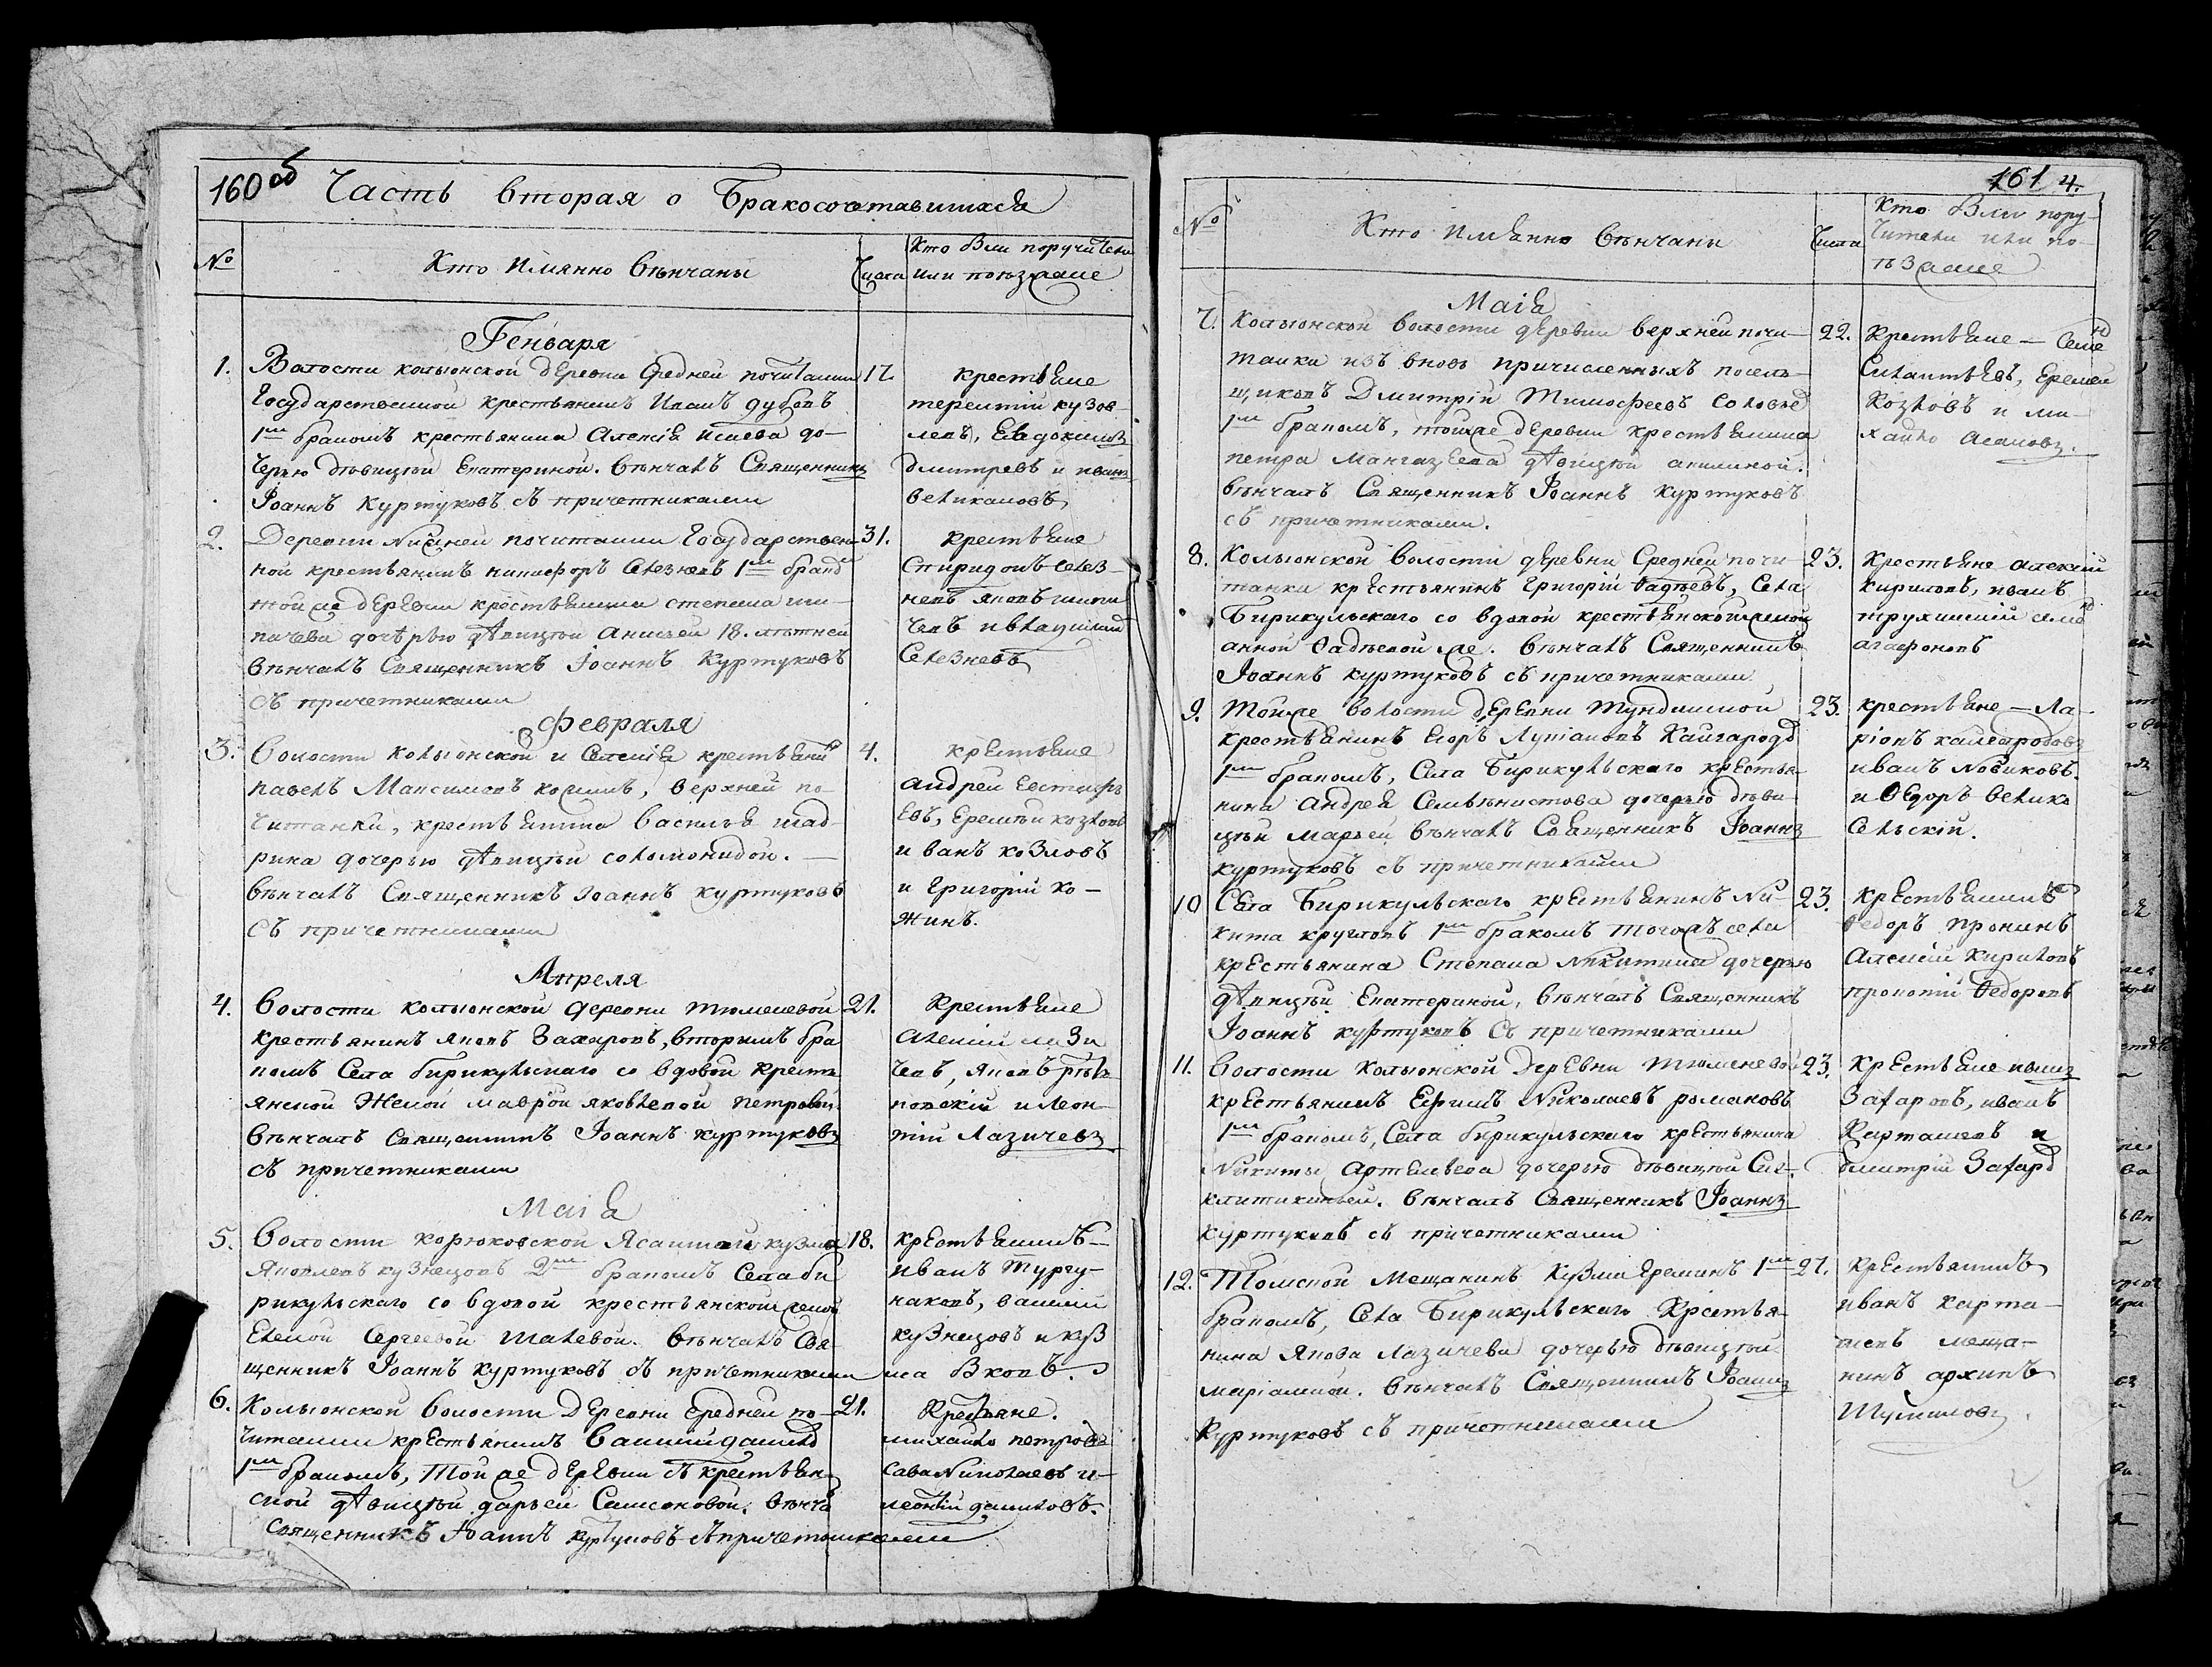 160 об Часть вторая о Бракосочетавшихся
№ Кто Имянно вѣнчаны Числа Кто были поручители или поѣзжане
Генваря
1. Волости колыонской деревни Средней почитанки 17.
Государственной крестьянинъ Иванъ дубовъ
1мъ бракомъ крестьянина Алексѣя Исаева до-
черью дѣвицѣй Екатериной. вѣнчалъ Священникъ
Іоаннъ Куртуковъ съ причетниками
крестьяне
терентій кузов-
левъ, Евдокимъ
дмитревъ и иванъ
великановъ
2. Деревни Нижней почитанки Государствен- 31.
ной крестьянинъ никифоръ Селезневъ 1мъ брако
той же деревни крестьянина степана
дочерью дѣвицѣй Анисьей 18. лѣтней
вѣнчалъ Священникъ Іоаннъ Куртуковъ
съ причетниками
крестьяне
Спиридонъ селез-
невъ яковъ шипи
чевъ
Селезневъ
Февраля
3. волости колыонской и селенія крестьяни 4.
павелъ Максимовъ кожинъ, верхней по-
читанки, крестьянина василья шад-
рина дочерью дѣвицѣй соломонидой.
вѣнчалъ Священникъ Іоаннъ куртуковъ
съ причетниками
крестьяне
Андрей Евстифѣ
евъ, Еремѣй козловъ
иванъ козловъ
и Григорій ко-
жинъ.
Апреля
4. волости колыонской деревни тюменевой 21.
крестьянинъ яковъ Захаровъ, вторымъ бра
комъ Села бирикульскаго со вдовой кресть
янской Женой маврой яковлевой петровой
вѣнчалъ Священникъ Іоаннъ куртуковъ
съ причетниками
Крестьяне
Алексѣй лази
чевъ, яковъ
и Леон-
тій Лазичевъ
Маія
5. Волости корюковской Ясашной кузма 18.
Яковлевъ кузнецовъ 2мъ бракомъ Села би
рикульскаго со вдовой крестьянской женой
Еленой Сергеевой шалевой. вѣнчалъ Свя-
щенникъ Іоаннъ куртуковъ съ причетниками
крестьянинъ
иванъ Тургу-
наковъ, василій
кузнецовъ и куз
ма
6. Колыонской волости деревни средней по- 21.
читанки крестьянинъ василій данило
1мъ бракомъ, той же деревни съ крестьян-
ской дѣвицѣй дарьей Самсоновой. вѣнча
священникъ Іоаннъ куртуковъ съ причетниками
Крестьяне.
михайло петровъ
сава Николаевъ и
леонтій даниловъ.
161 4.
№ Кто Имянно вѣнчаны Числа Кто были пору-
чители или по-
ѣзжане
Маія
7. Колыонской волости деревни верхней почи- 22.
танки изъ вновь причисленныхъ посель-
щиковъ Дмитрій Тимофеевъ Соловье
1мъ бракомъ, тойже деревни крестьянина
петра Мангазеева дѣвицѣй акилиной.
вѣнчалъ Священникъ Іоаннъ куртуковъ
съ причетниками.
Крестьяне — Семе
Силантьевъ, Еремей
Козловъ и ми-
хайло
8. Колыонской волости деревни Средней почи- 23.
танки крестьянинъ Григорій Фадѣевъ, Села
Бирикульскаго со вдовой крестьянской женой
анной Фадѣевой же. вѣнчалъ Священникъ
Іоаннъ куртуковъ съ причетниками
Крестьяне алексѣй
кириловъ, иванъ
трухинскій семе
агафоновъ
9. Тойже волости деревни Тундинской 23.
крестьянинъ Егоръ Лукіановъ Кайгародо
1мъ бракомъ, Села Бирикульскаго крестья-
нина Андрея дочерью дѣви-
цѣй Марьей вѣнчалъ Священникъ Іоаннъ
куртуковъ съ причетниками
крестьяне — Ла-
ріонъ кайгородовъ
иванъ Новиковъ.
и Ѳедоръ велико
сельскій.
10 Села Бирикульскаго крестьянинъ Ни- 23.
кита кругловъ 1мъ бракомъ тогожъ села
крестьянина Степана Никитина дочерью
дѣвицѣй Екатериной, вѣнчалъ Священникъ
Іоаннъ куртуковъ съ причетниками
Крестьянинъ
Ѳедоръ пронинъ
Алексѣй Кириловъ
прокопій Ѳедоровъ
11. Волости Колыонской Деревни тюменево 23.
крестьянинъ Ефимъ Николаевъ романовъ
1мъ бракомъ, Села бирикульскаго крестьянина
Никиты Артемьева дочерью дѣвицѣй Син-
клитикіньей. вѣнчалъ Священникъ Іоаннъ
куртуковъ съ причетниками
Крестьяне иванъ
Захаровъ, иванъ
Карташевъ и
дмитрій Захаро
12. Томской Мещанинъ Кузма Ереминъ 1мъ 27.
бракомъ, Села Бирикульскаго Крестья-
нина Якова Лазичева дочерью дѣвицѣй
маріанной. вѣнчалъ Священникъ Іоаннъ
куртуковъ съ причетниками
Крестьянинъ
иванъ карта-
шевъ меща-
нинъ архипъ
Шумиловъ